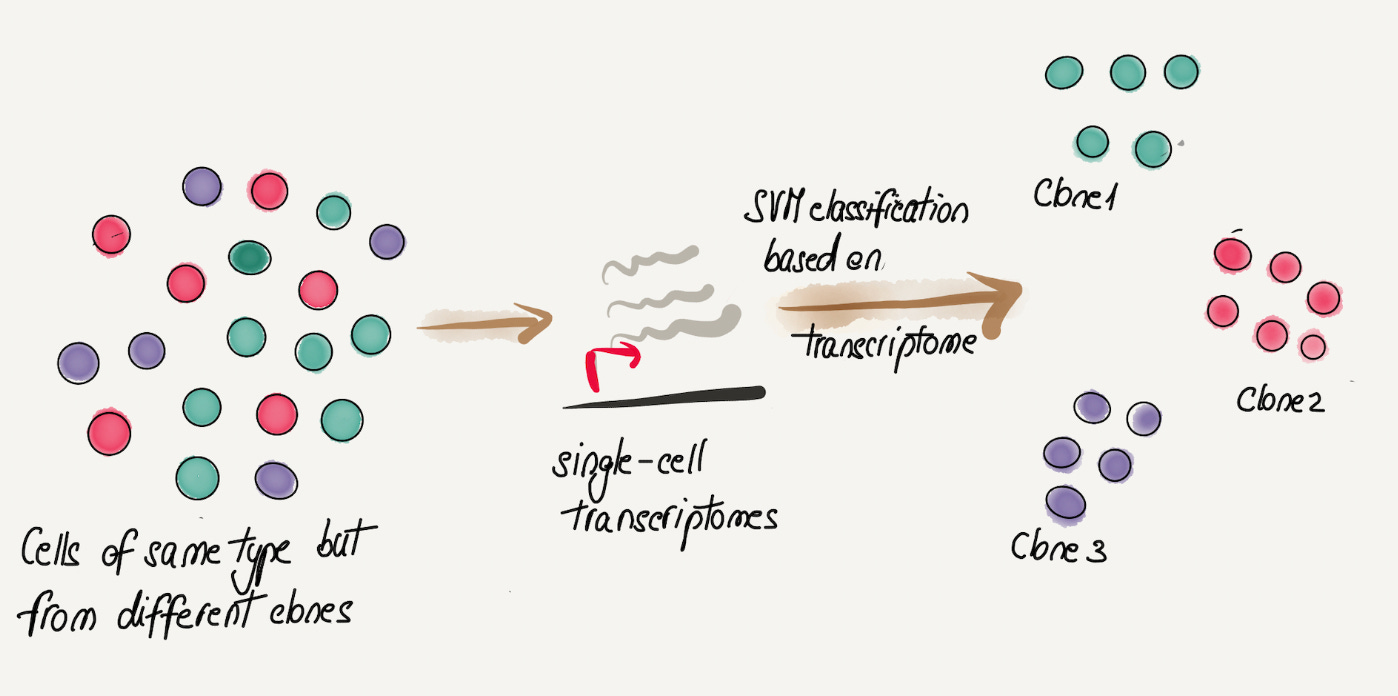 Cells of same type but
from different clones
single-cell
transcriptomes
SVM classification
based on
transcriptome
Clone 1
Clone 2
Clone 3